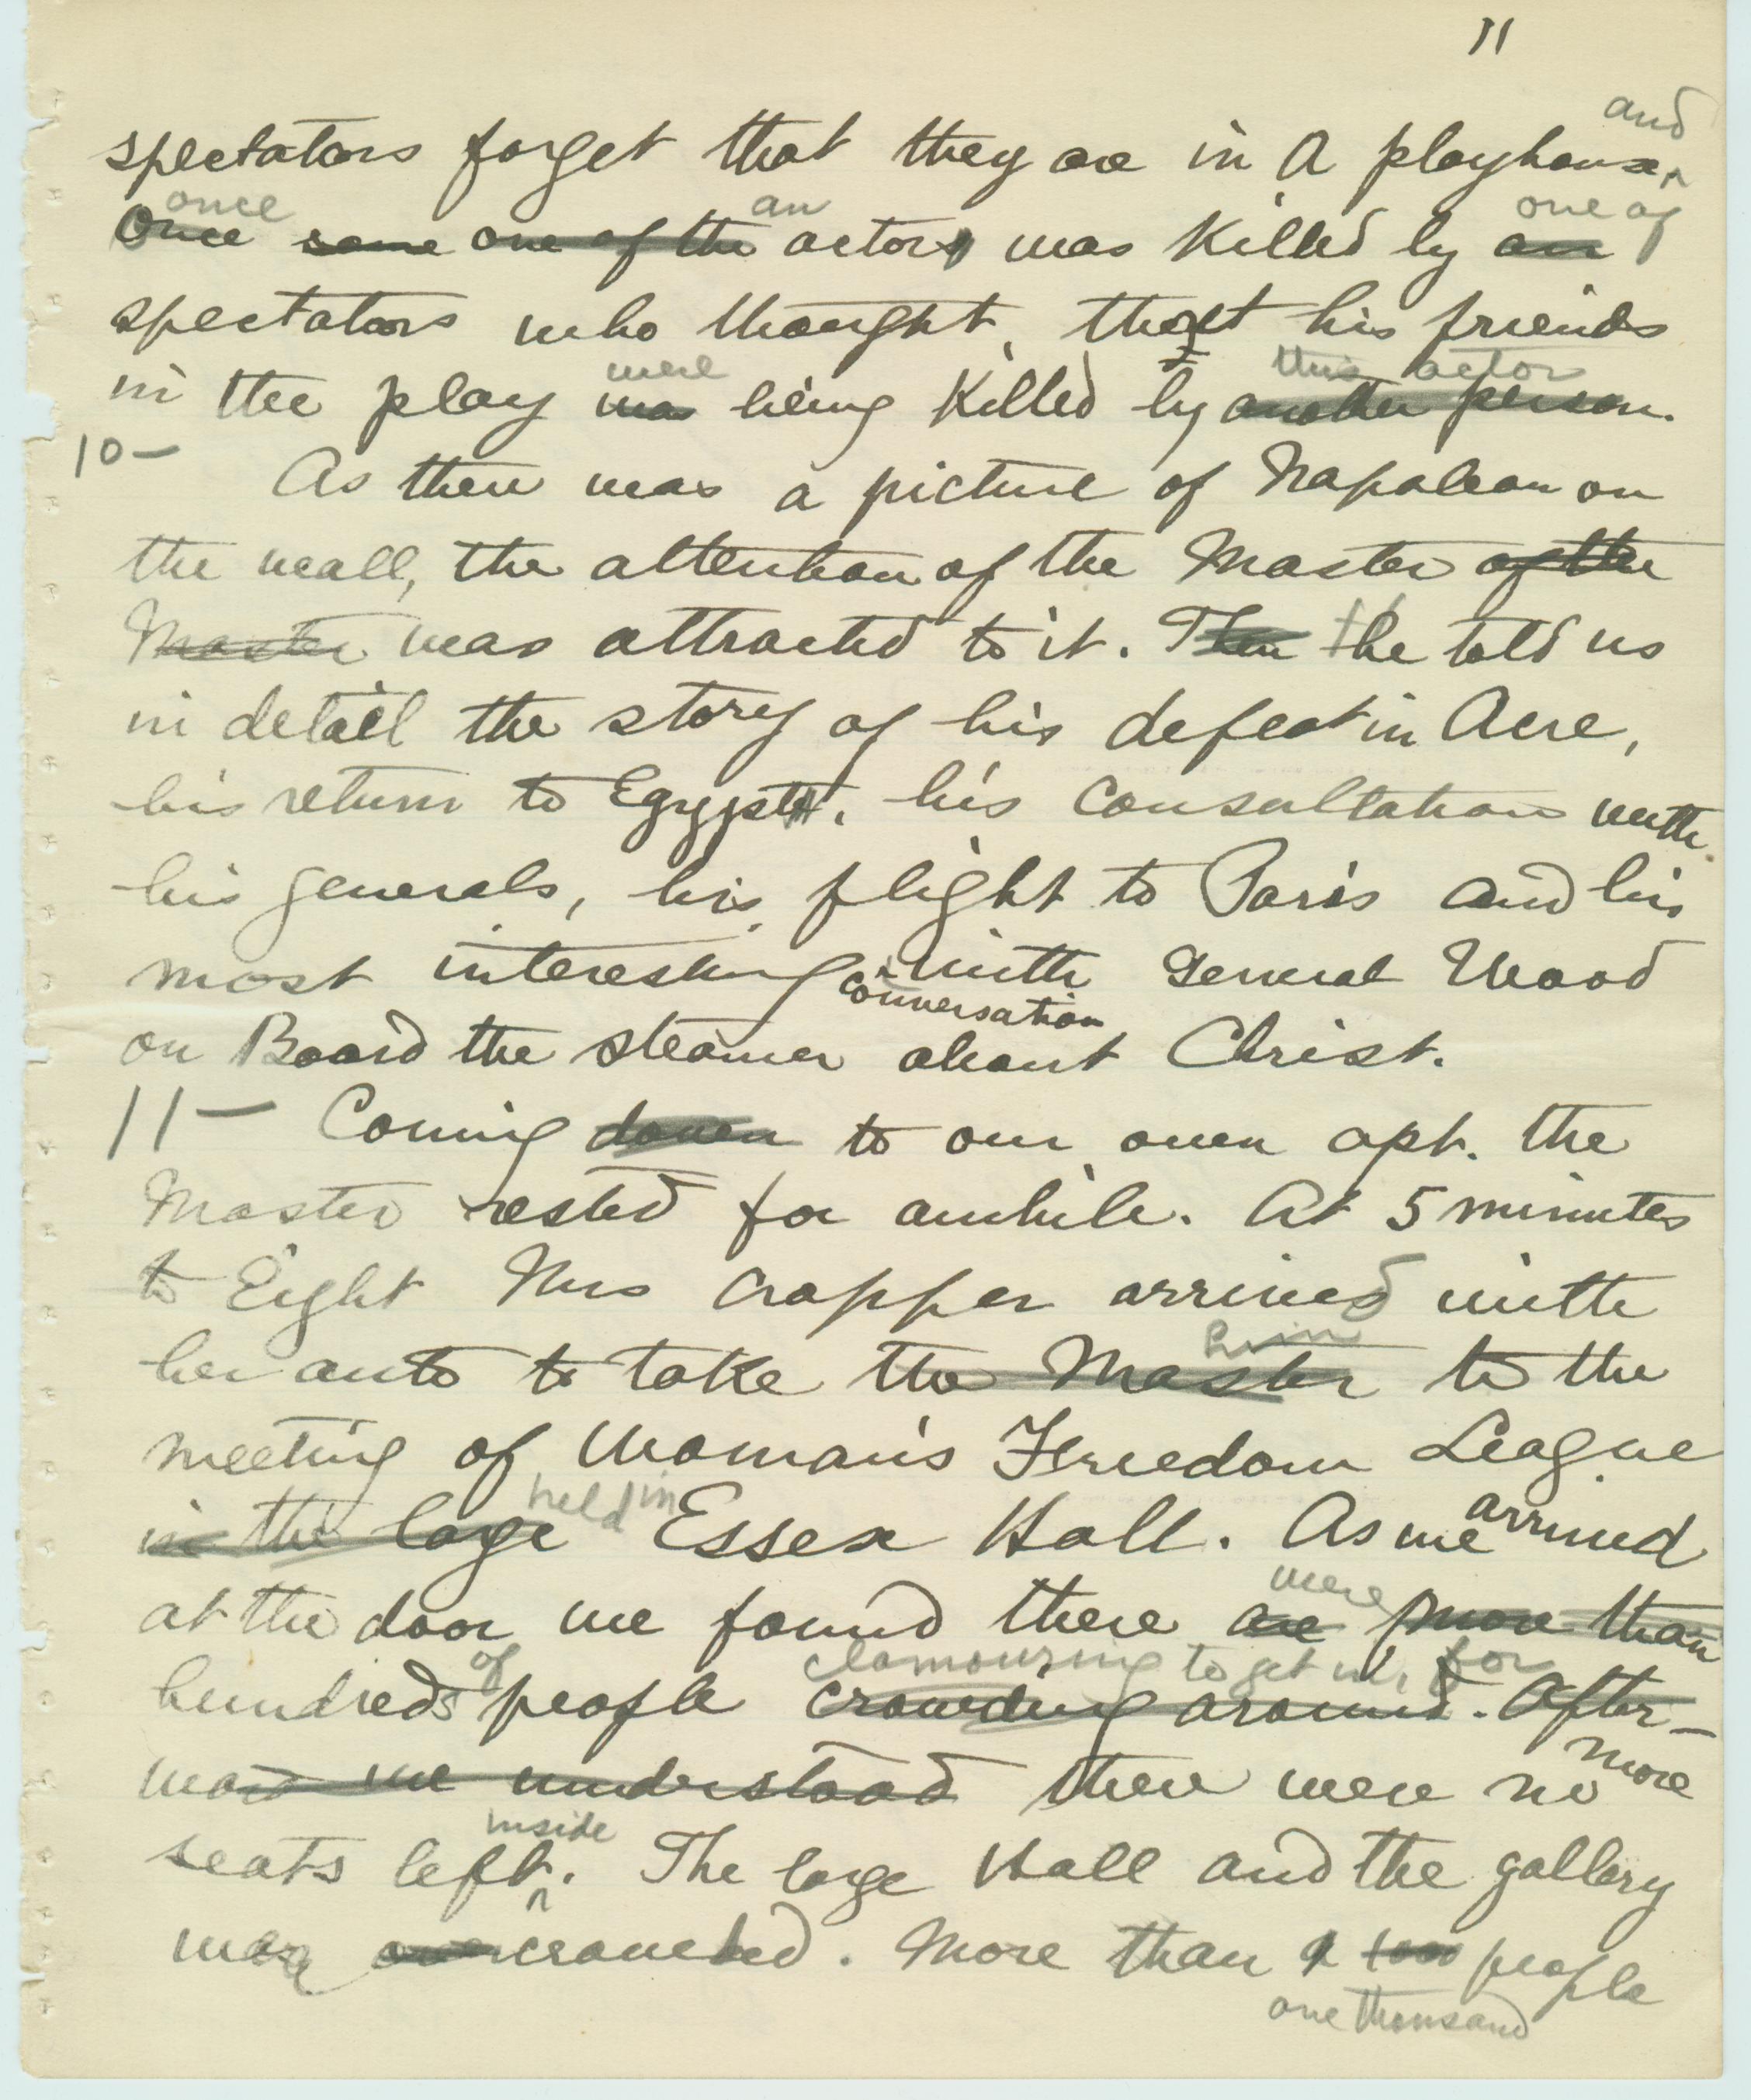 11
and
spectators forget that they are in a playhouse ^
once an one of
Once some one of the actors was killed by an
spectators who thought, that his friends
were this actor
in the play was being killed by another person.
10— As there was a picture of Napoleon on
the wall, the attention of the Master of the
Master was attracted to it. Then he told us
in detail the story of his defeat in Acre,
his return to Egypt, his consultation with
his generals, his flight to Paris and his
most interesting with General Wood
conversation
on Board the steamer about Christ.
11— Coming down to our own apt. the
Master rested for awhile. At 5 minutes
to Eight Mrs Cropper arrived with
him
her auto to take the Master to the
meeting of Woman's Freedom League
held in arrived
in the large Essex Hall. As we
were
at the door we found there are more than
of clamouring to get in, for
hundreds people crowding around. After-
more
ward we understood there were no
inside
seats left ^. The large Hall and the gallery
was overcrowded. More than 1000 people
one thousand